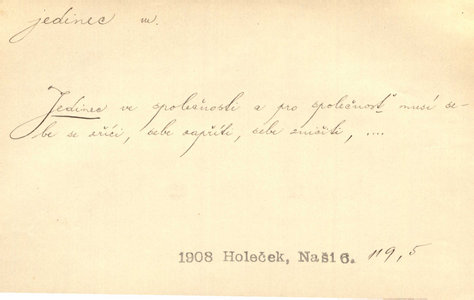 jedinec m.
Jedinec ve společnosti a pro společnost musí se-
be se zříci, sebe zapříti, sebe zničiti, ....
1908 Holeček, Naši 6. 119,5